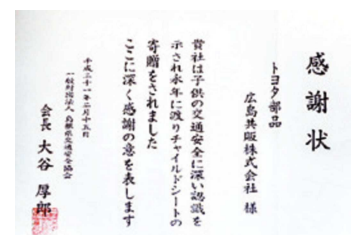 感謝状
トヨタ部品
広島共販株式会社 様
貴社は子供の交通安全に深い認識を
示され永年に渡りチャイルドシートの
寄贈をされました
ここに深く感謝の意を表します
平成二十一年二月十五日
一般財団法人 島根県交通安全協会
会長 大谷 厚郎